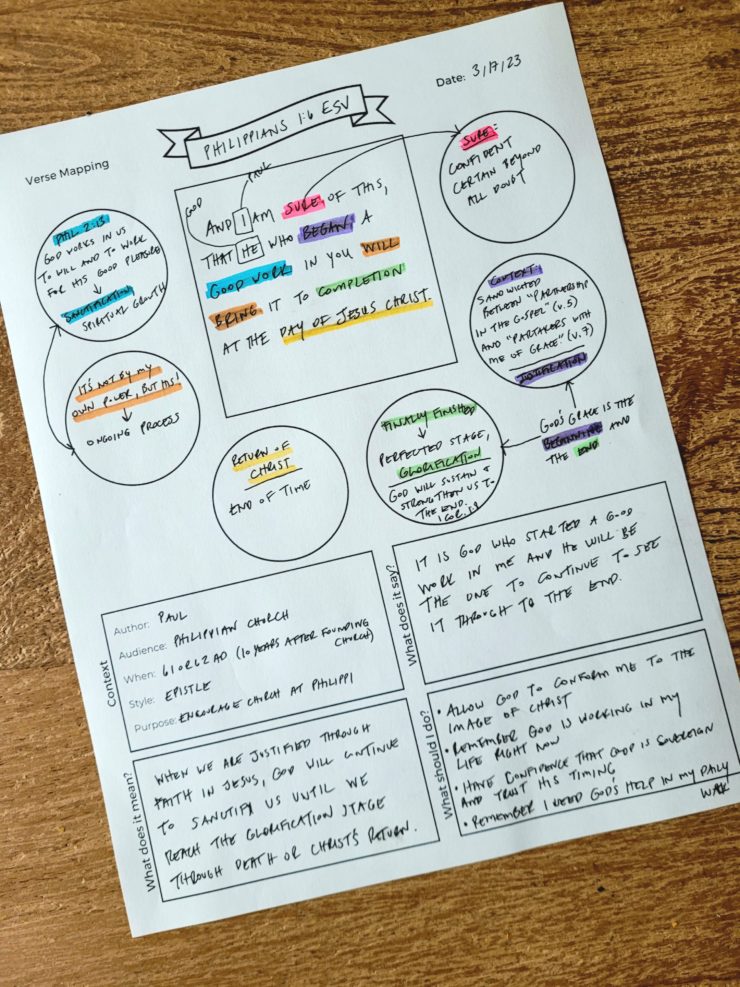 Date: 3/17/23
PHILIPPIANS 1:6 ESV
Verse Mapping
PAUL
GOD
AND I AM SURE OF THIS,
THAT HE WHO BEGAN A
GOOD WORK IN YOU WILL
BRING IT TO COMPLETION
AT THE DAY OF JESUS CHRIST.
SURE:
CONFIDENT
CERTAIN BEYOND
ALL DOUBT
PHIL 2:13
GOD WORKS IN US
TO WILL AND TO WORK
FOR HIS GOOD PLEASURE
SANCTIFICATION
SPIRITUAL GROWTH
CONTEXT:
SANDWICHED
BETWEEN "PARTNERSHIP
IN THE GOSPEL" (V.5)
AND "PARTAKERS WITH
ME OF GRACE." (V.7)
JUSTIFICATION
IT'S NOT BY MY
OWN POWER, BUT HIS!
ONGOING PROCESS
RETURN OF
CHRIST
END OF TIME
FINALLY FINISHED
PERFECTED STAGE,
GLORIFICATION
GOD WILL SUSTAIN &
STRENGTHEN US TO
THE END.
1 COR. 1:8
GOD'S GRACE IS THE
BEGINNING AND
THE END.
Context
Author: PAUL
Audience: PHILIPPIAN CHURCH
When: 61 OR 62 AD (10 YEARS AFTER FOUNDING
CHURCH)
Style: EPISTLE
Purpose: ENCOURAGE CHURCH AT PHILIPPI
What does it say?
IT IS GOD WHO STARTED A GOOD
WORK IN ME AND HE WILL BE
THE ONE TO CONTINUE TO SEE
IT THROUGH TO THE END.
What does it mean?
WHEN WE ARE JUSTIFIED THROUGH
FAITH IN JESUS, GOD WILL CONTINUE
TO SANCTIFY US UNTIL WE
REACH THE GLORIFICATION STAGE
THROUGH DEATH OR CHRIST'S RETURN.
What should I do?
• ALLOW GOD TO CONFORM ME TO THE
IMAGE OF CHRIST
• REMEMBER GOD IS WORKING IN MY
LIFE RIGHT NOW
• HAVE CONFIDENCE THAT GOD IS SOVEREIGN
AND TRUST HIS TIMING
• REMEMBER I NEED GOD'S HELP IN MY DAILY
WALK